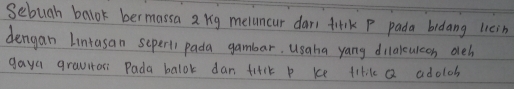 Sebuah balok bermassa 2 kg meluncur dari titik P pada bidang licin
dengan Lintasan seperti pada gambar. Usaha yang dilakukan oleh
gaya gravitasi Pada balok dari titik P ke titik Q adalah